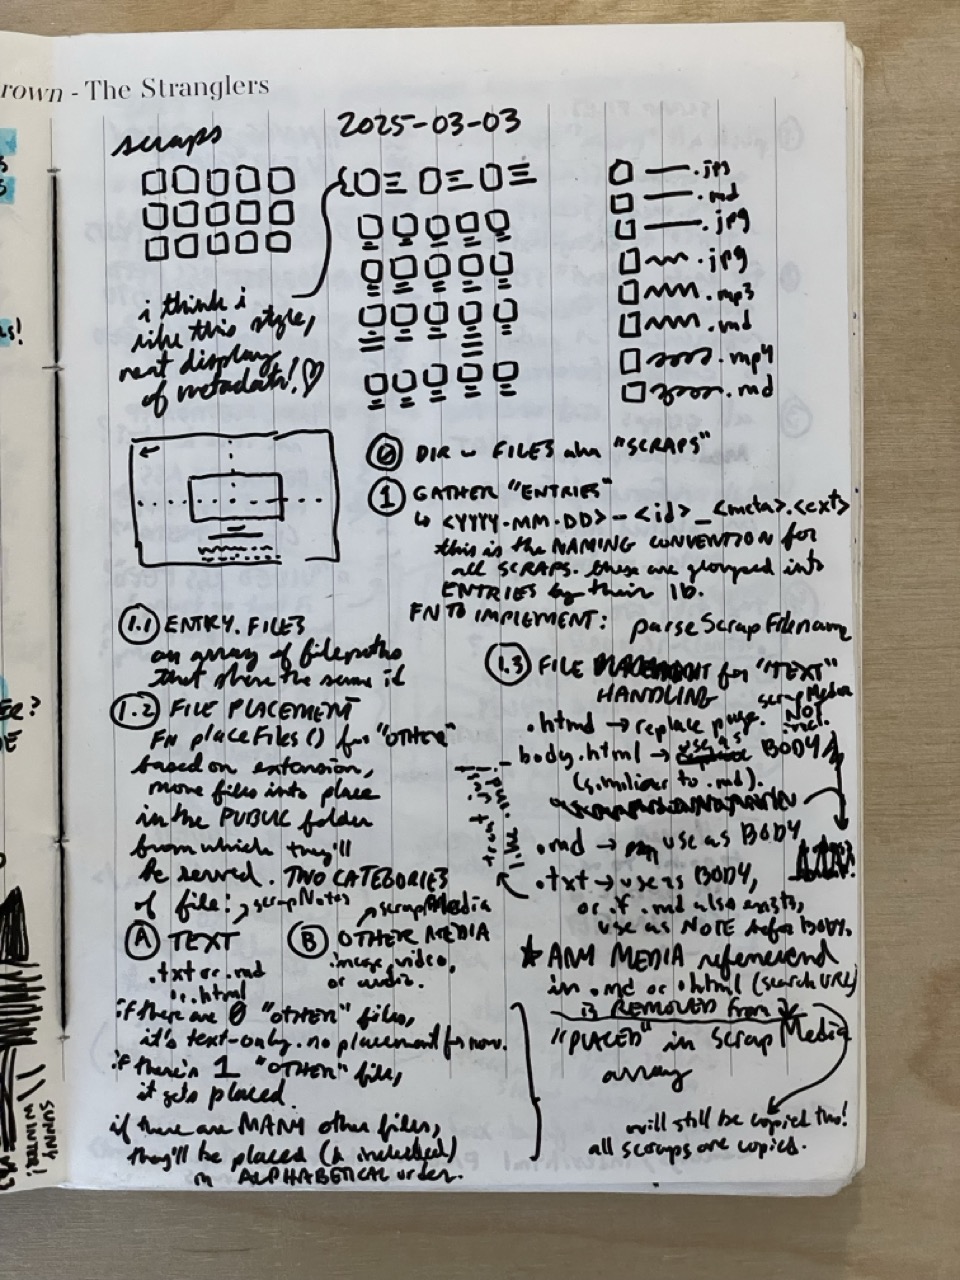 rown - The Stranglers
scraps
2025-03-03
.jpg
.md
.jpg
.jpg
.mp3
.md
.mp4
.md
i think i
like this style,
neat display
of metadata!
0 DIR w FILES aka "SCRAPS"
1 GATHER "ENTRIES"
<YYYY-MM-DD>_<id>_<meta>.<ext>
this is the NAMING CONVENTION for
all SCRAPS. these are grouped into
ENTRIES by their ID.
FN TO IMPLEMENT: parseScrapFilename
1.1 ENTRY.FILES
an array of filepaths
that share the same id
1.2 FILE PLACEMENT
FN placeFiles() for "OTHER"
based on extension,
move files into place
in the PUBLIC folder
from which they'll
be served. TWO CATEGORIES
of file: scrapNotes
scrapMedia
A TEXT
.txt or .md
or .html
B OTHER MEDIA
image, video,
or audio.
if there are 0 "OTHER" files,
it's text-only. no placement for now.
if there's 1 "OTHER" file,
it gets placed.
if there are MANY other files,
they'll be placed (& included)
in ALPHABETICAL order.
1.3 FILE for "TEXT"
HANDLING
scrapMedia
NOT
incl.
.html → replace page.
_body.html → use as BODY
(similar to .md).
.md → use as BODY
.txt → use as BODY,
or if .md also exists,
use as NOTE before BODY.
★ ANY MEDIA referenced
in .md or .html (search URL)
is REMOVED from
"PLACED" in scrapMedia
array
will still be copied tho!
all scraps are copied.
s!
ER?
SUNNY
WINTER!